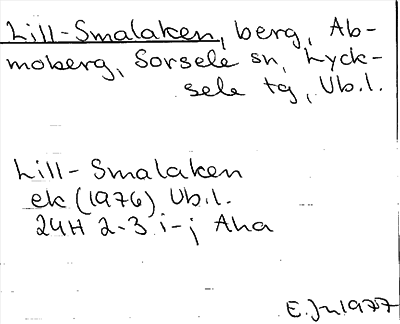 Lill-Smalaken, berg, Ab-
moberg, Sorsele sn, Lyck-
sele tg, Vb.l.
Lill-Smalaken
ek (1976) Vb.l.
24H 2-3 i-j Aha
E.Jn 1977